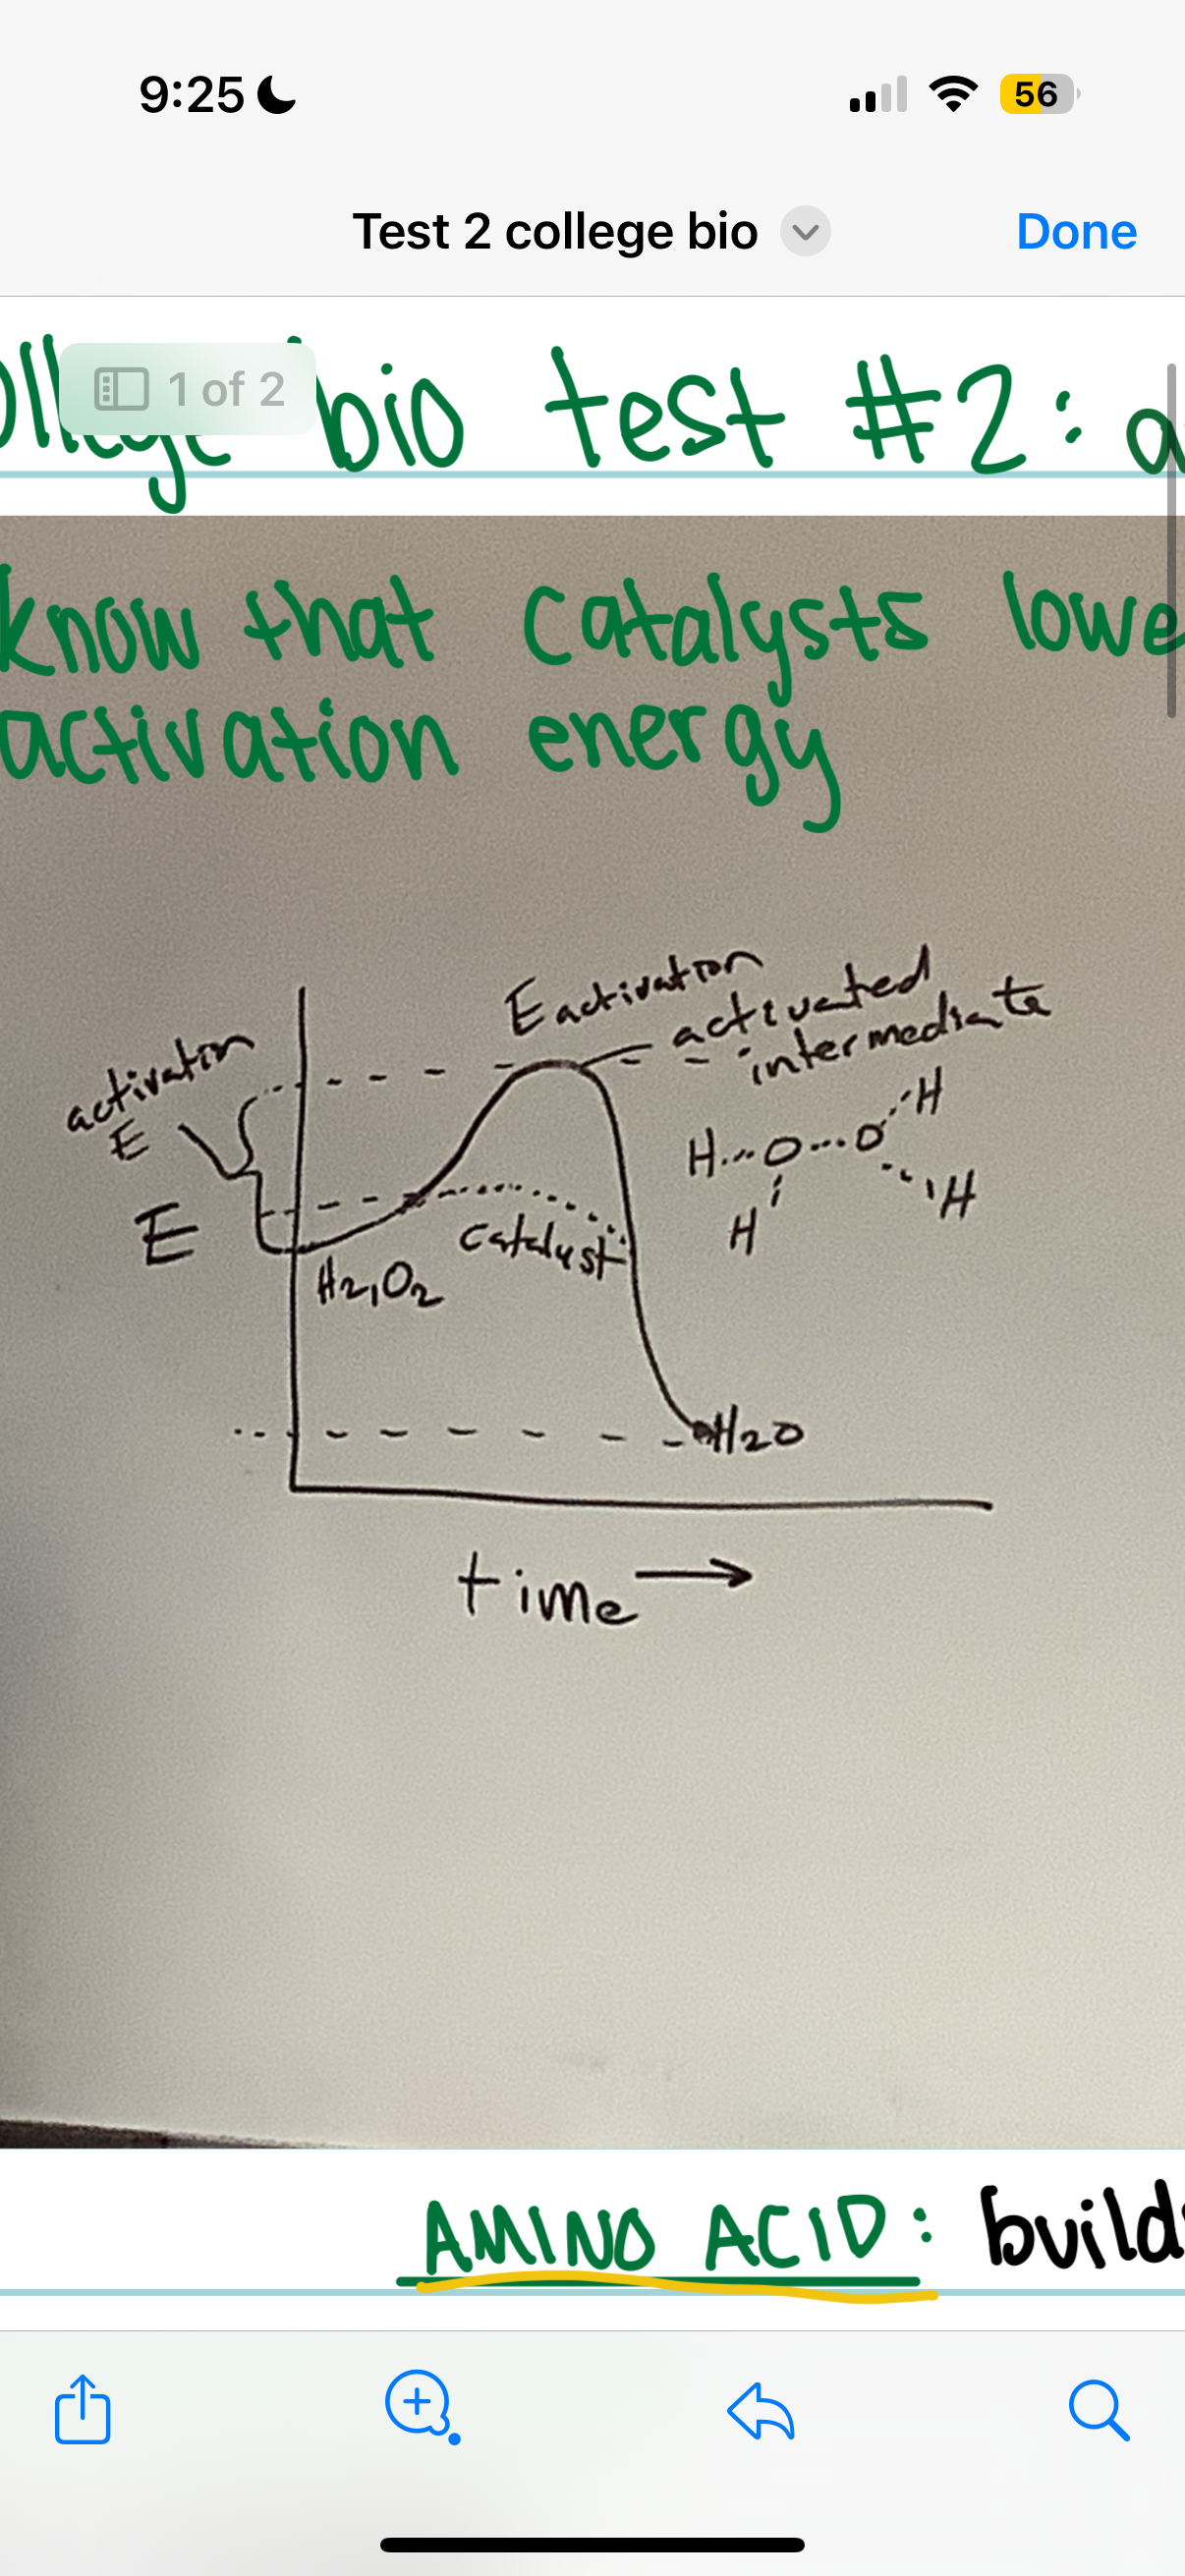 9:25
56
Test 2 college bio
Done
1 of 2
college bio test #2: a
know that catalysts lowe
activation energy
Eactivation
activated
intermediate
activation
E
H
H O O
H
H
E
catalyst
H2,O2
H2O
time
AMINO ACID: build